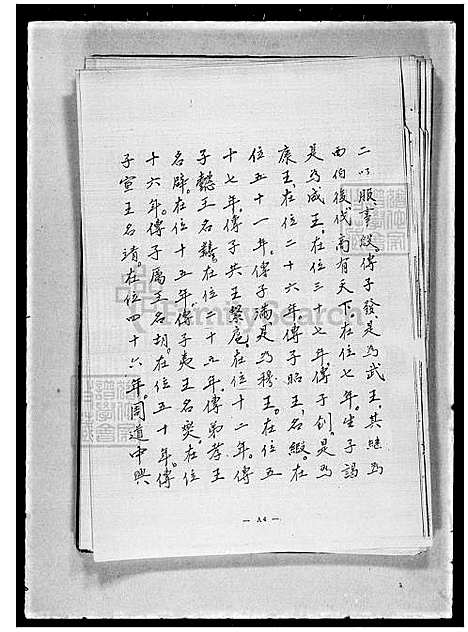 二以服事殷。傳子發、是為武王、其继為
西伯後代商有天下。在位七年。生子誦
是為成王、在位三十七年、傳子釗。是為
康王、在位二十六年傳子昭王、名瑕。在
位五十一年。傳子滿是為穆王。在位五
十七年。傳子共王繄扈、在位十二年。傳
子懿王名囏。在位二十五年。傳弟孝王
名辟。在位十五年。傳子夷王名燮。在位
十六年。傳子厲王名胡。在位五十年。傳
子宣王名靖。在位四十六年。周道中興
— A4 —
FamilySearch